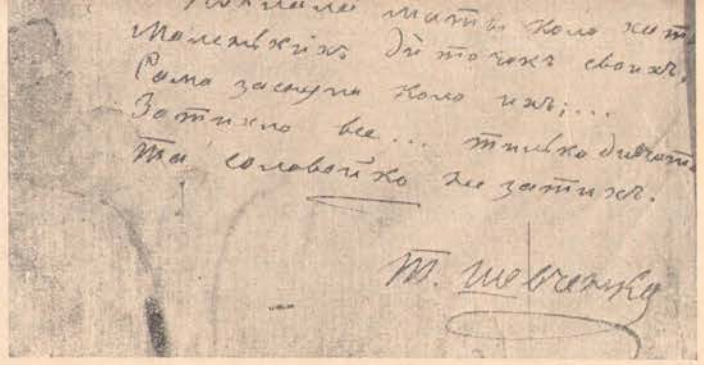 Поклала маты коло хат
Маленькихъ діточокъ своихъ,
Сама заснула коло ихъ;...
Затихло все... тилько дивчат
Та соловейко не затихъ.
Т. Шевченко